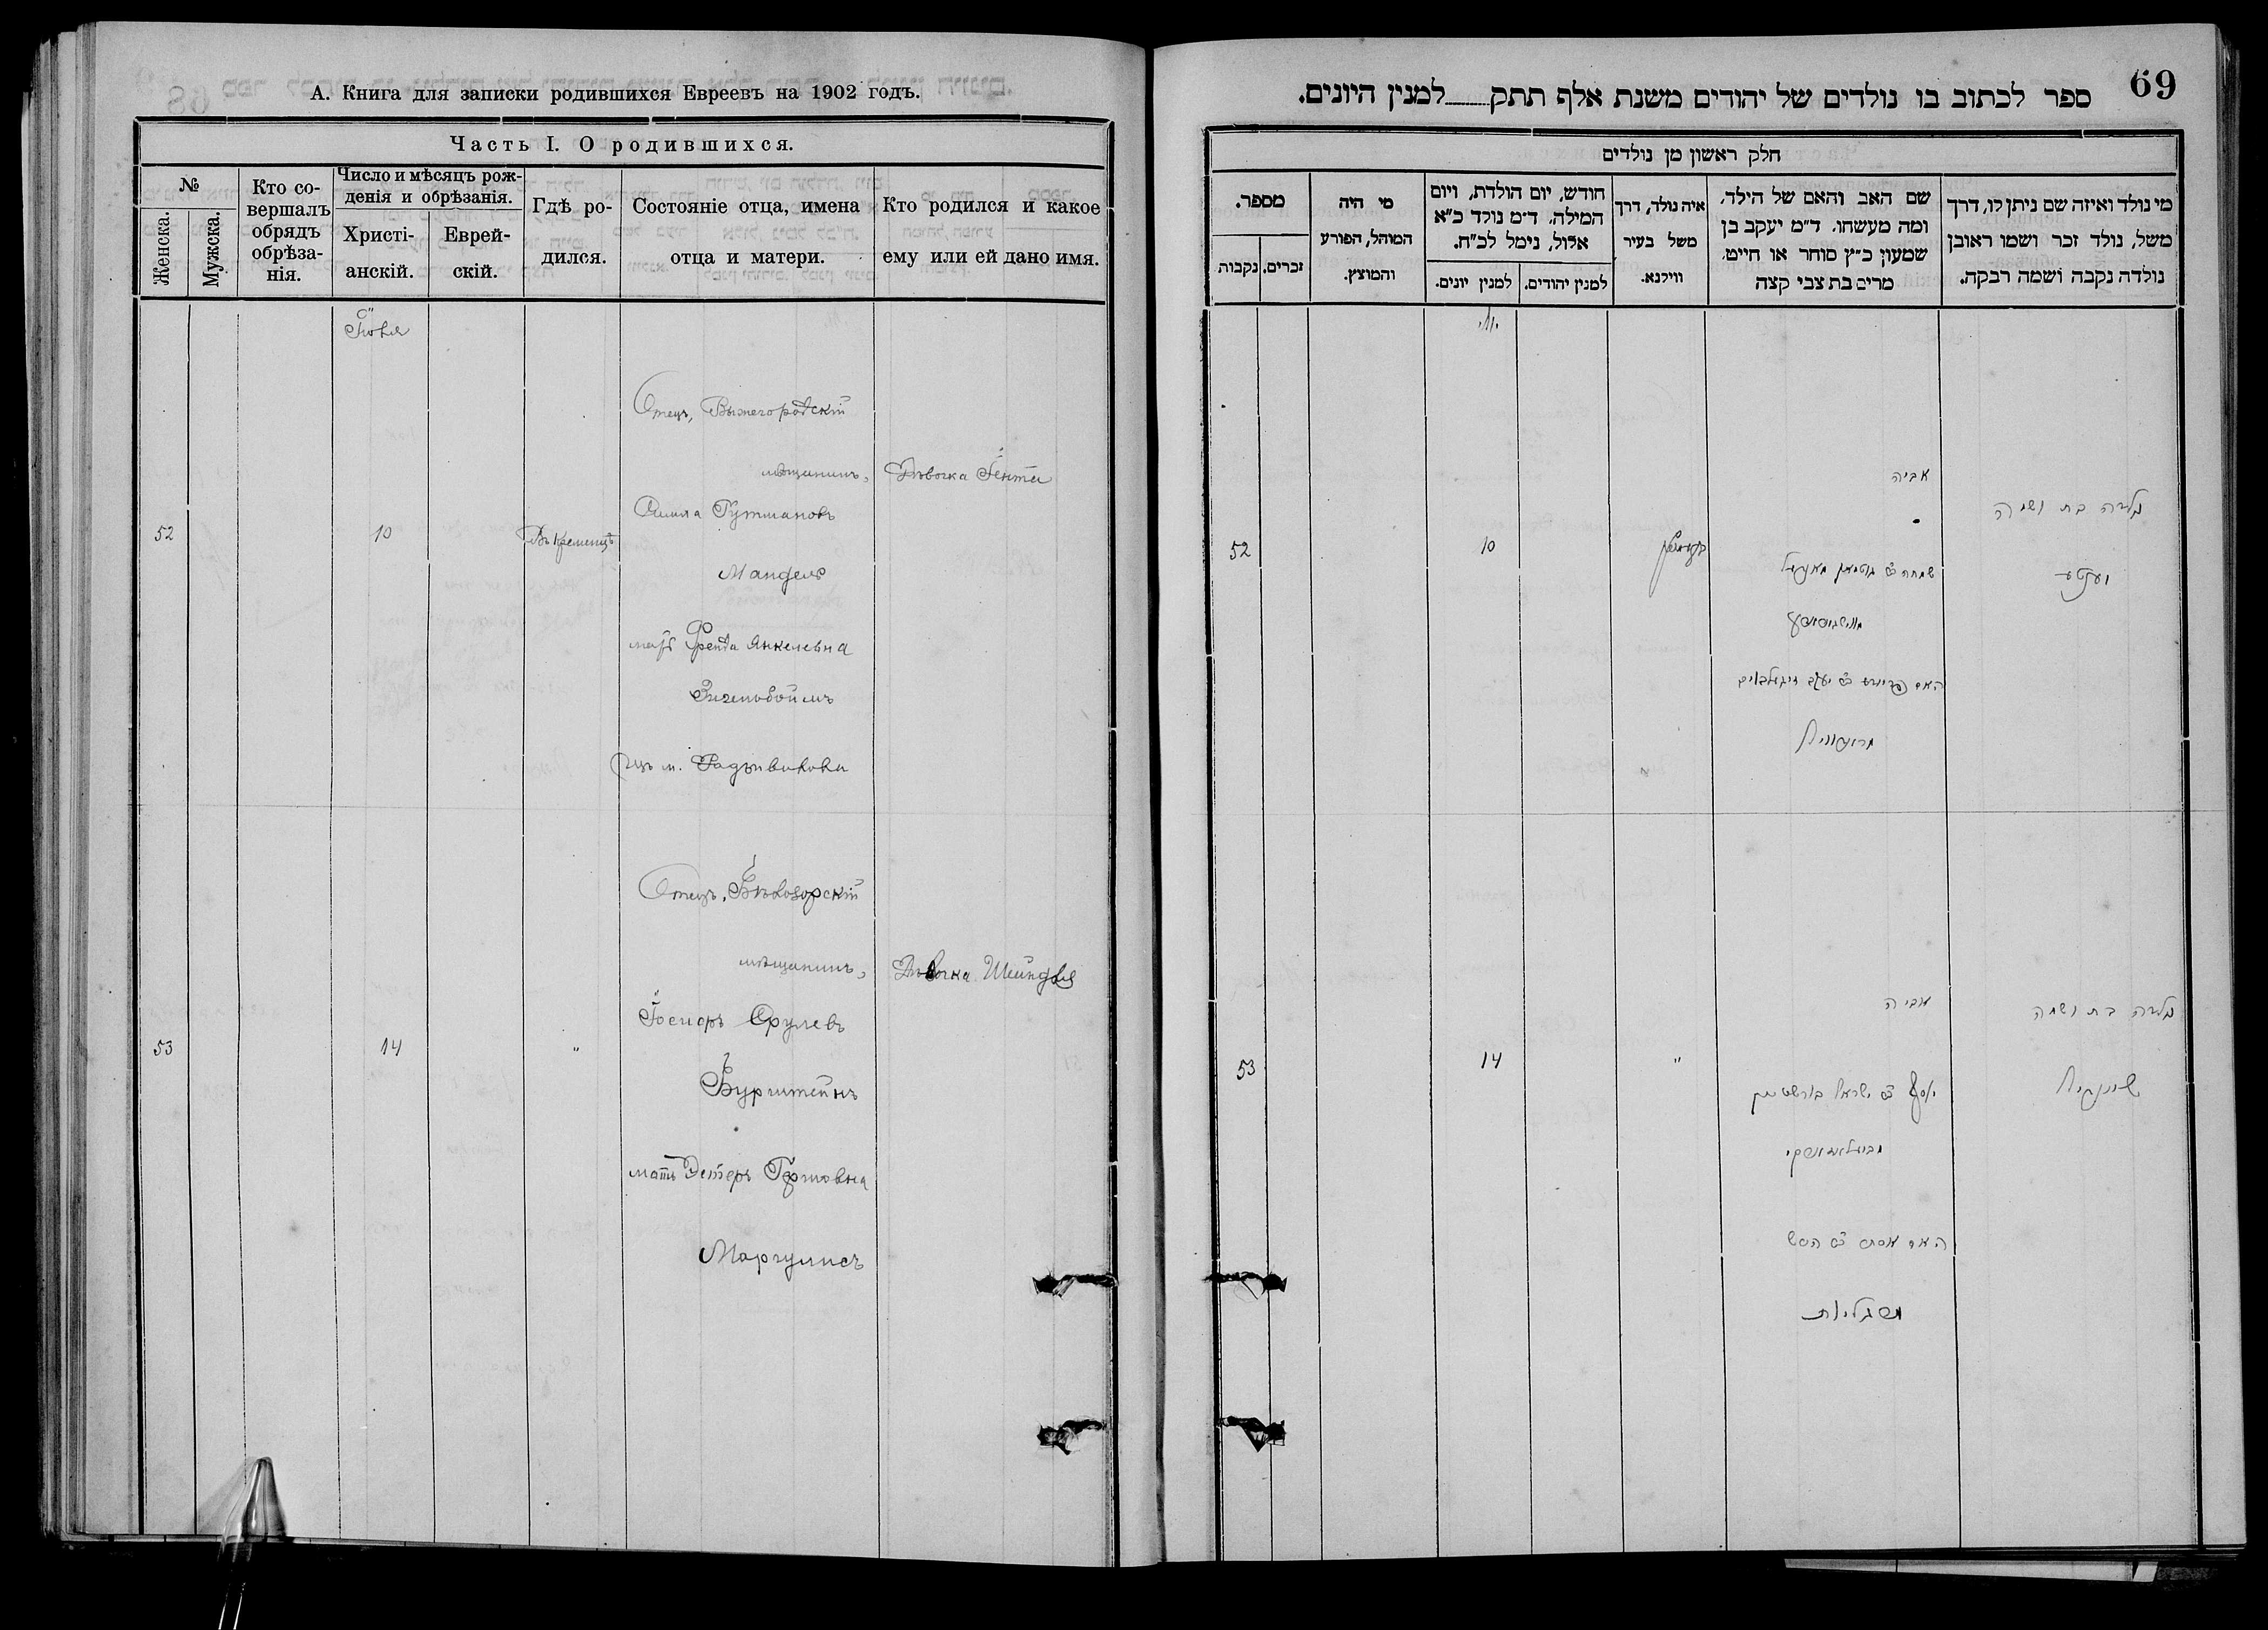 А. Книга для записки родившихся Евреевъ на 1902 годъ.
Часть I. О родившихся.
№
Женска.
Мужска.
Кто со-
вершалъ
обрядъ
обрѣза-
нія.
Число и мѣсяцъ рож-
денія и обрѣзанія.
Христі-
анскій.
Еврей-
скій.
Гдѣ ро-
дился.
Состояніе отца, имена
отца и матери.
Кто родился и какое
ему или ей дано имя.
Іюля
52
10
Въ Кременцѣ
Отецъ, Вышегородскій
мѣщанинъ,
Гутмановъ
Мандель
мать Фрейда Янкелевна
Зигельбоймъ
изъ м. Радзивилова
Дѣвочка Іента
53
14
"
Отецъ, Бѣлозорскій
мѣщанинъ,
Іосифъ Срулевъ
Бурштейнъ
мать Эстеръ Гершовна
Маргулисъ
Дѣвочка Шейндля
69
ספר לכתוב בו נולדים של יהודים משנת אלף תתק למנין היונים.
חלק ראשון מן נולדים
מספר.
נקבות
זכרים.
מי היה
המוהל, הפורע
והמוצץ.
חודש, יום הולדת, ויום
המילה. ד״מ נולד כ״א
אלול, נימל לכ״ח.
למנין יונים.
למנין יהודים.
איה נולד, דרך
משל בעיר
ווילנא.
שם האב והאם של הילד.
ומה מעשהו. ד״מ יעקב בן
שמעון כ״ץ סוחר או חייט.
מרים בת צבי קצה
מי נולד ואיזה שם ניתן לו, דרך
משל, נולד זכר ושמו ראובן
נולדה נקבה ושמה רבקה.
יולי
52
10
אביה
שמחה ב״ר גוטמאן מאנדיל
האם פריידא ב״ר יעקב זיגעלבוים
נולדה בת ושמה
יענטע
53
14
"
אביה
יוסף ב״ר ישראל בורשטיין
האם אסתר ב״ר הירש
מרגליות
נולדה בת ושמה
שיינדיל